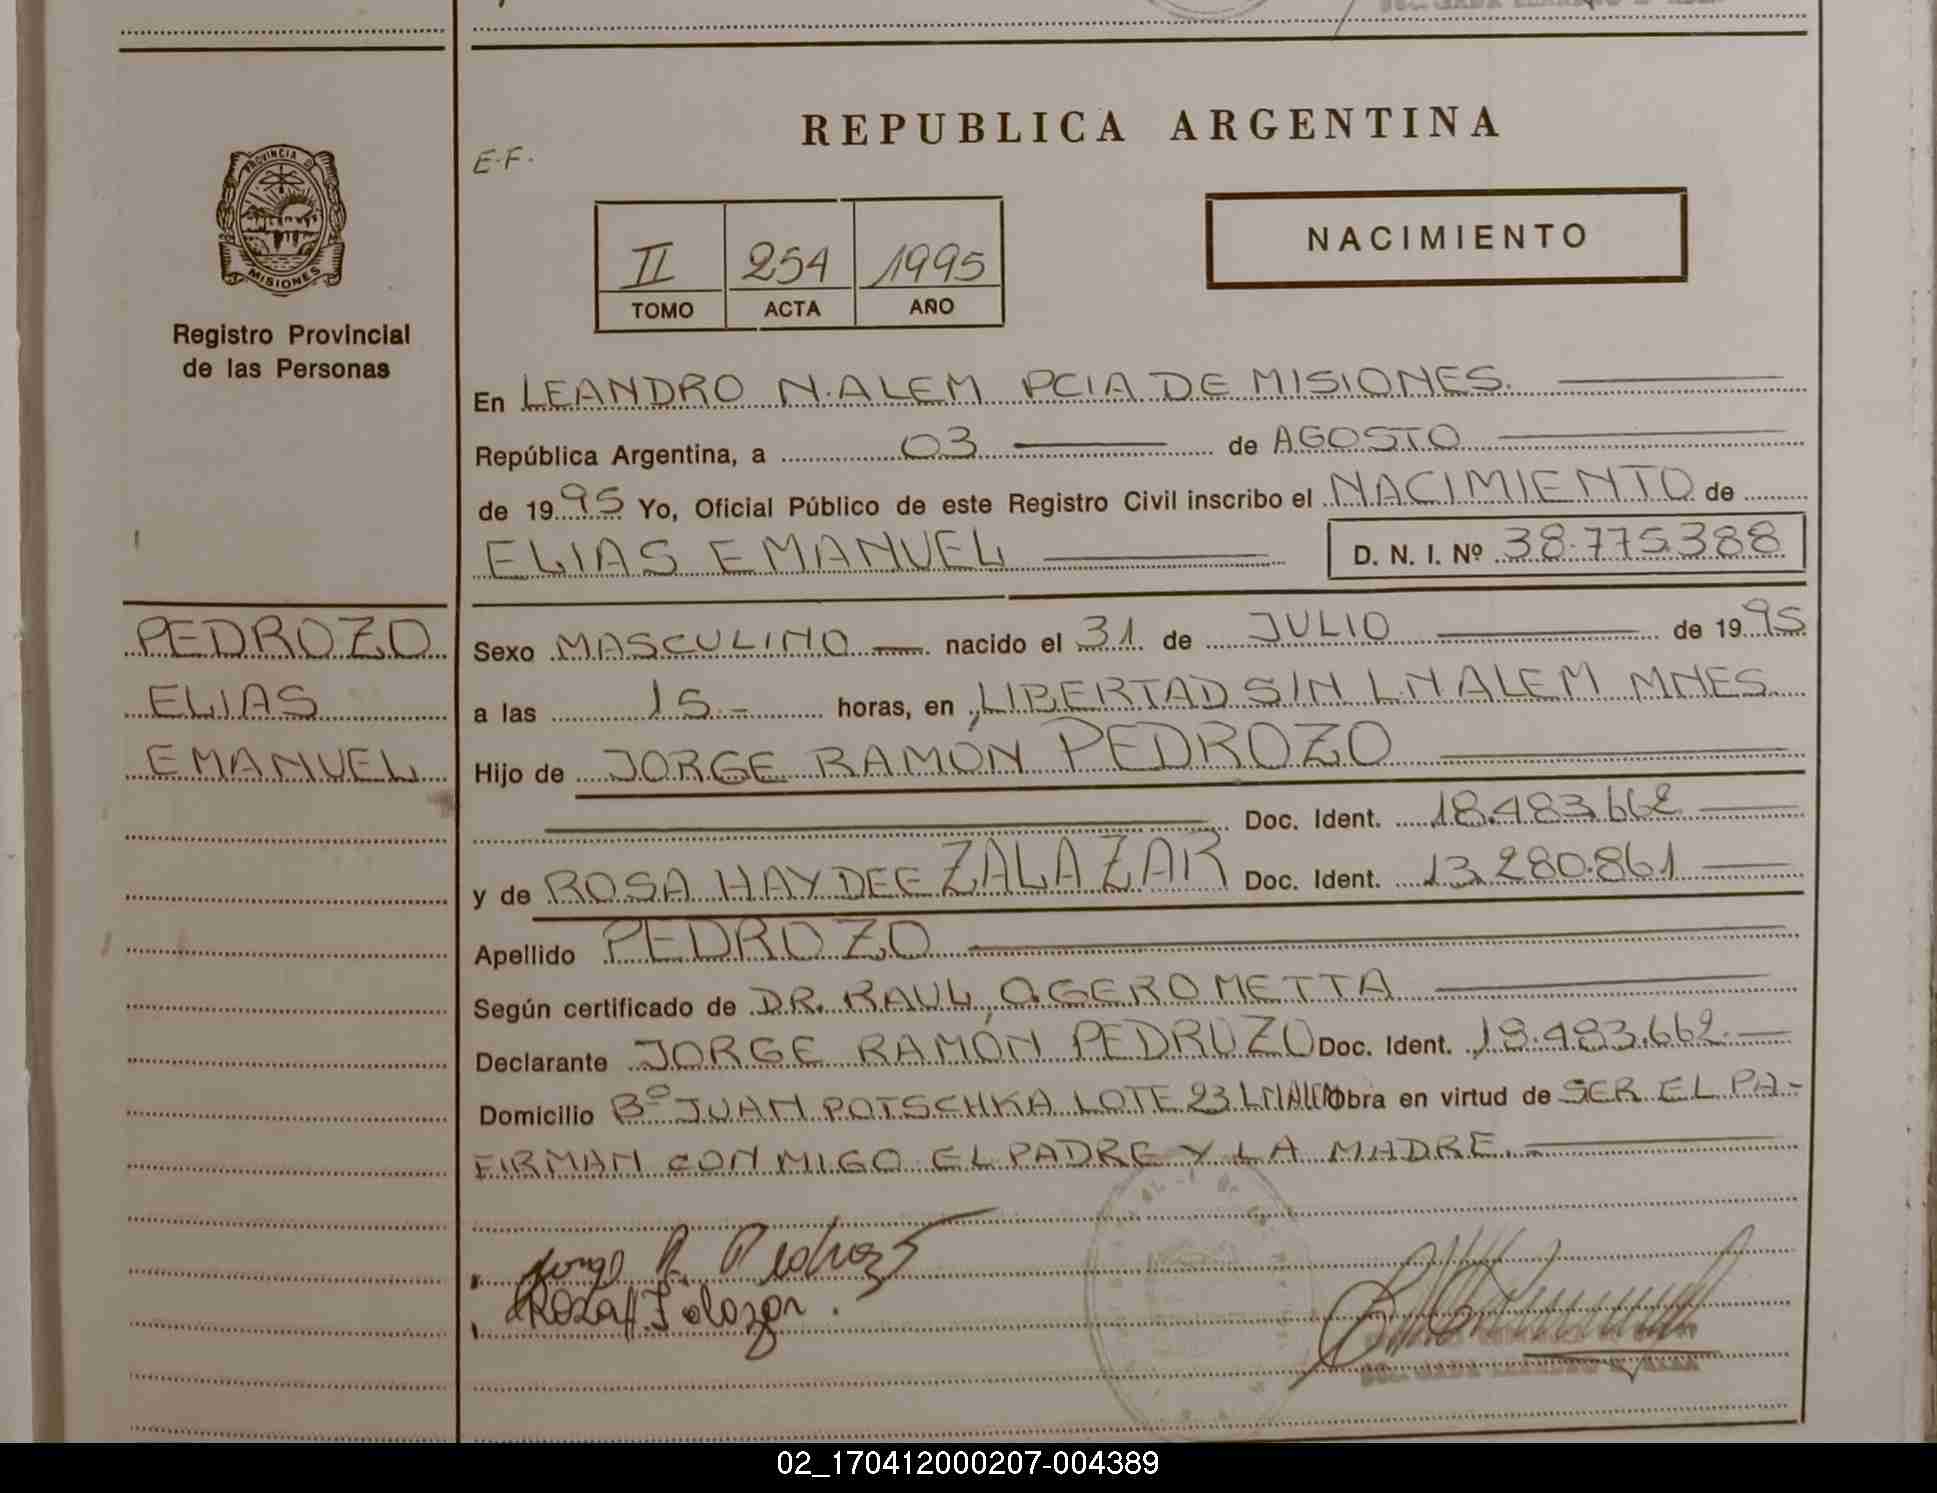 REPUBLICA ARGENTINA
E.F.
PROVINCIA D
MISIONES
Registro Provincial
de las Personas
II 254 1995
TOMO ACTA AÑO
NACIMIENTO
En LEANDRO N. ALEM PCIA DE MISIONES.
República Argentina, a 03 de AGOSTO
de 1995 Yo, Oficial Público de este Registro Civil inscribo el NACIMIENTO de
ELIAS EMANUEL D. N. I. Nº 38.775.388
PEDROZO
ELIAS
EMANUEL
Sexo MASCULINO nacido el 31 de JULIO de 1995
a las 15.- horas, en LIBERTAD S/N L.N ALEM MNES.
Hijo de JORGE RAMÓN PEDROZO
Doc. Ident. 18.483.662
y de ROSA HAYDEE ZALAZAR Doc. Ident. 13.280.861
Apellido PEDROZO
Según certificado de DR. RAUL O. GEROMETTA
Declarante JORGE RAMÓN PEDROZO Doc. Ident. 18.483.662.
Domicilio Bº JUAN POTSCHKA LOTE 23 L.N.ALEM Obra en virtud de SER EL PA-
FIRMAN CONMIGO EL PADRE Y LA MADRE.
Jorge R. Pedrozo
Rosa H. Zalazar.
02_170412000207-004389